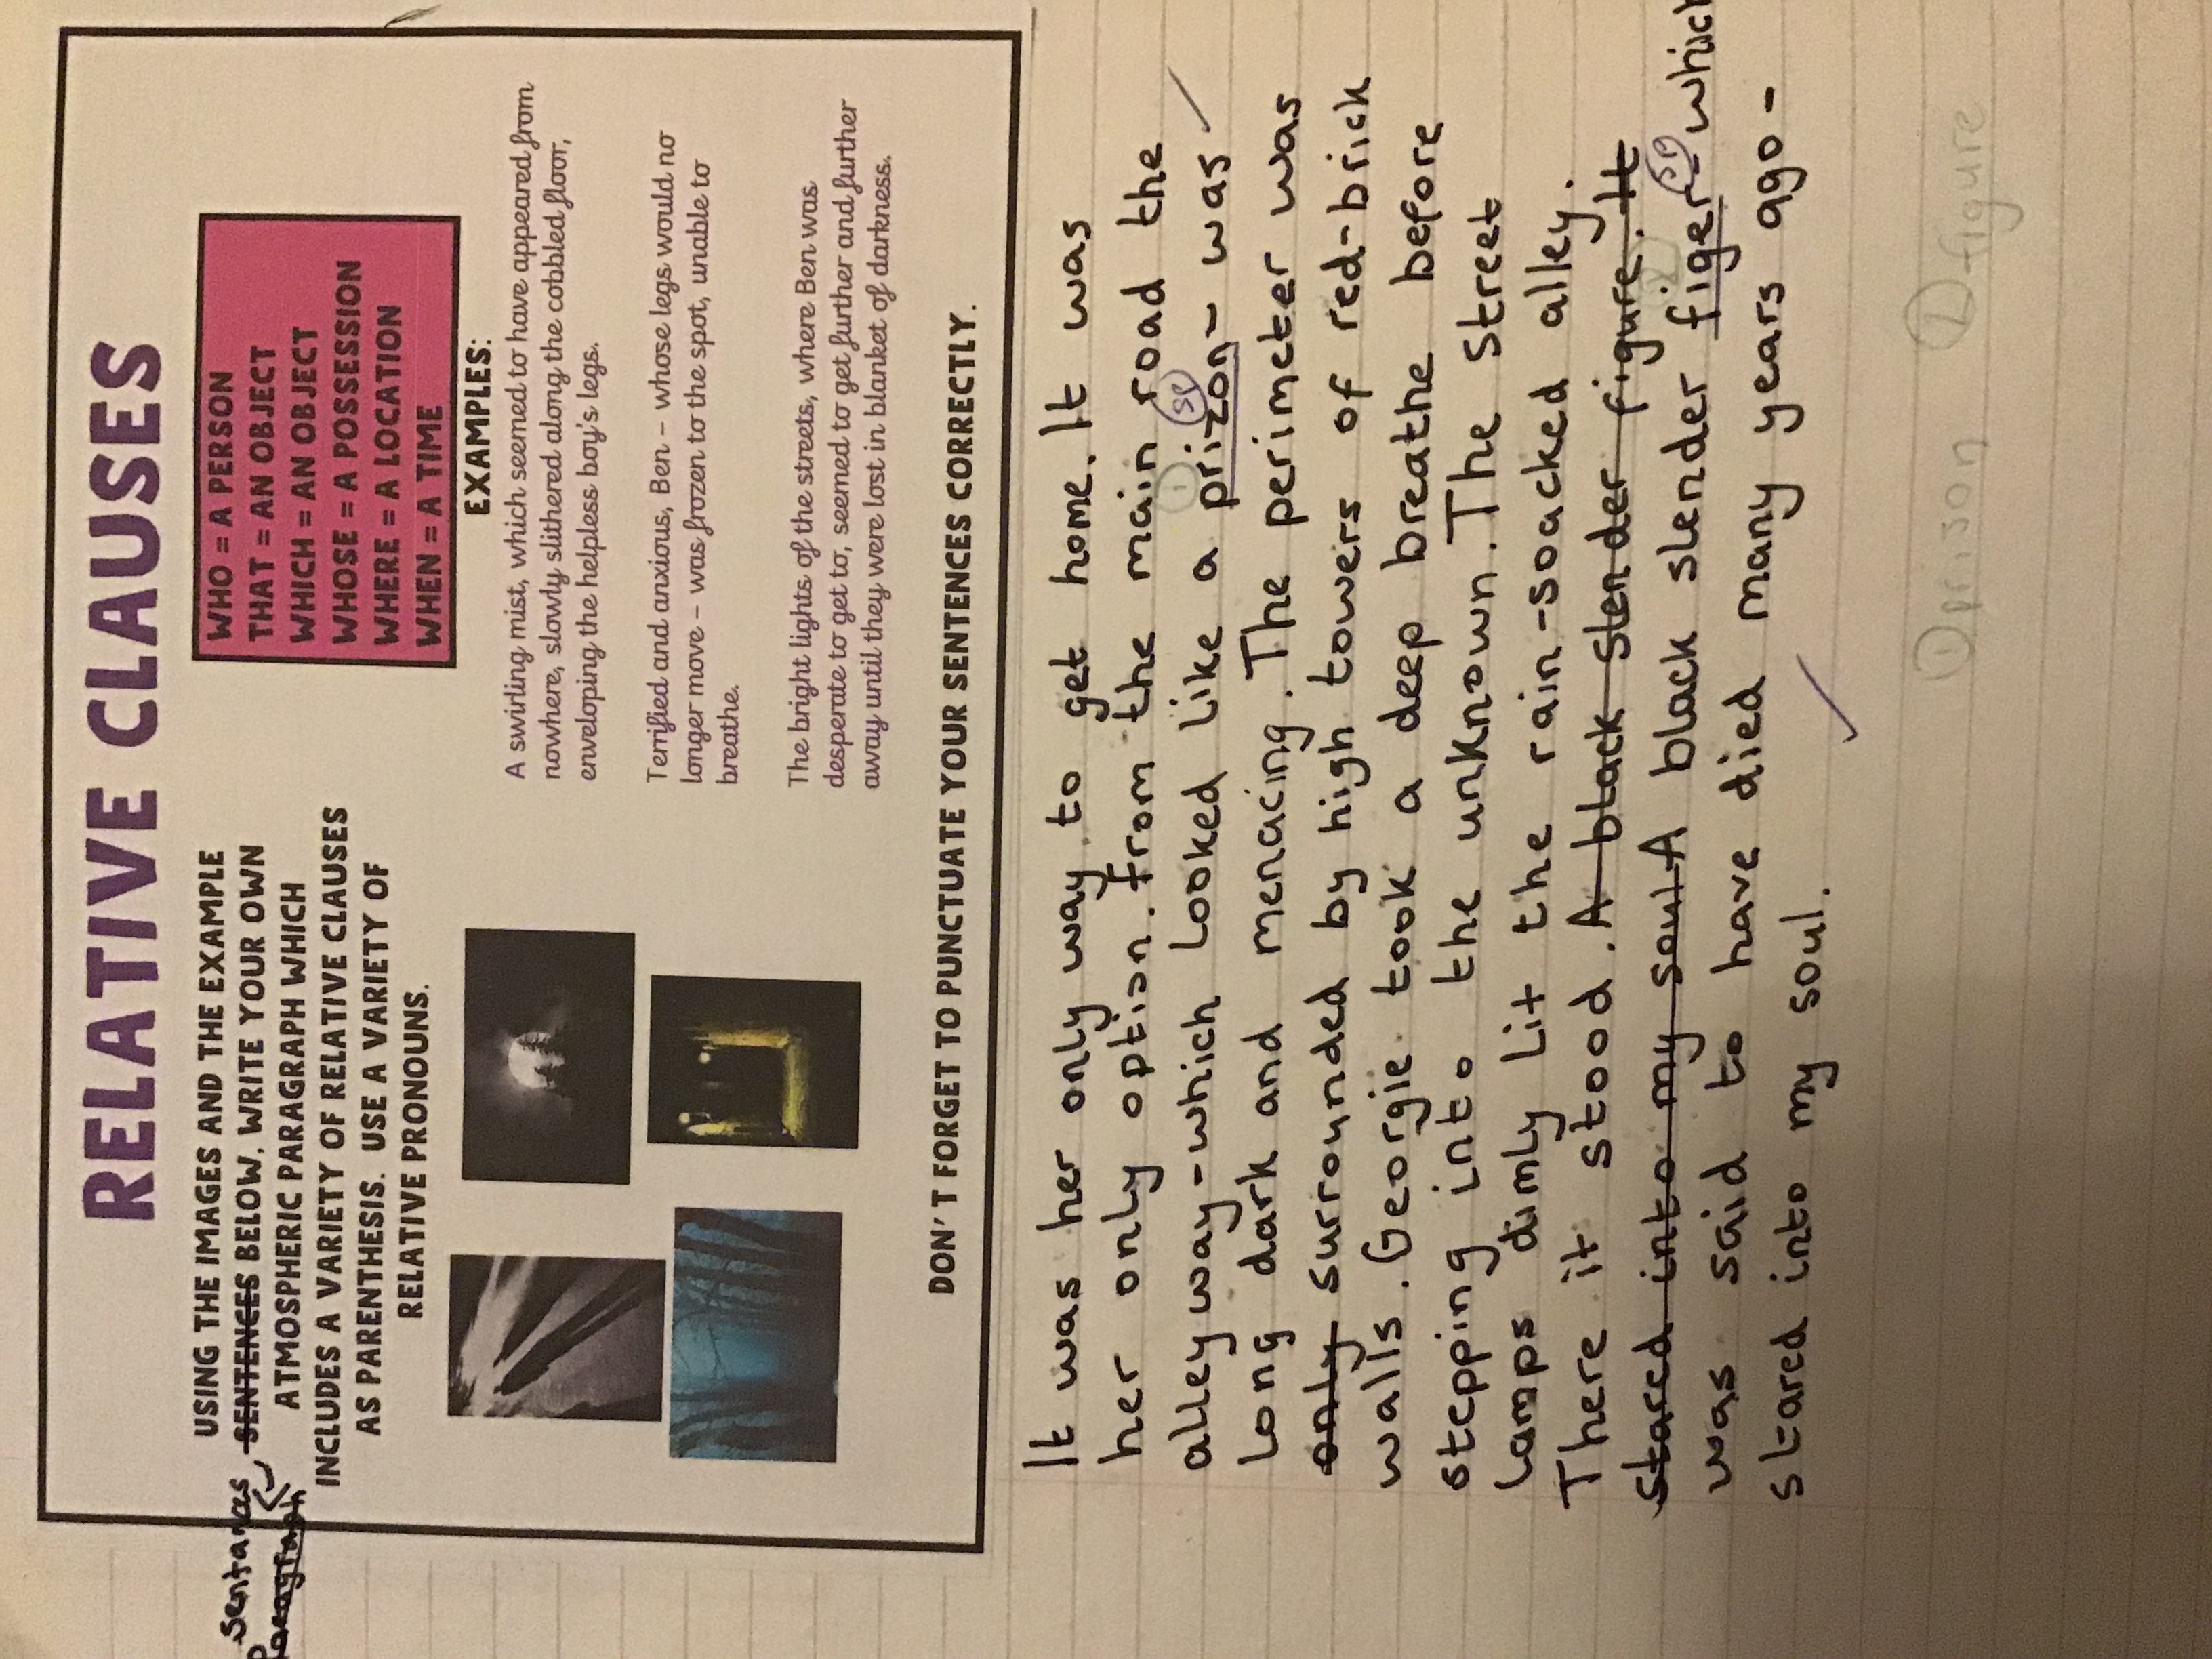 RELATIVE CLAUSES
USING THE IMAGES AND THE EXAMPLE
SENTENCES BELOW, WRITE YOUR OWN
ATMOSPHERIC PARAGRAPH WHICH
INCLUDES A VARIETY OF RELATIVE CLAUSES
AS PARENTHESIS. USE A VARIETY OF
RELATIVE PRONOUNS.
paragraph
WHO = A PERSON
THAT = AN OBJECT
WHICH = AN OBJECT
WHOSE = A POSSESSION
WHERE = A LOCATION
WHEN = A TIME
EXAMPLES:
A swirling mist, which seemed to have appeared from
nowhere, slowly slithered along the cobbled floor,
enveloping the helpless boy's legs.
Terrified and anxious, Ben – whose legs would no
longer move – was frozen to the spot, unable to
breathe.
The bright lights of the streets, where Ben was
desperate to get to, seemed to get further and further
away until they were lost in blanket of darkness.
DON'T FORGET TO PUNCTUATE YOUR SENTENCES CORRECTLY.
It was her only way to get home. It was
her only option. from the main road the
alleyway-which looked like a prizon- was
sp
long dark and menacing. The perimeter was
only surrounded by high towers of red-brick
walls. Georgie took a deep breathe before
stepping into the unknown. The street
lamps dimly lit the rain-soacked alley.
There it stood. A black slender figure. It
stared into my soul A black slender figer- which
sp
was said to have died many years ago-
stared into my soul.
① prison ② figure